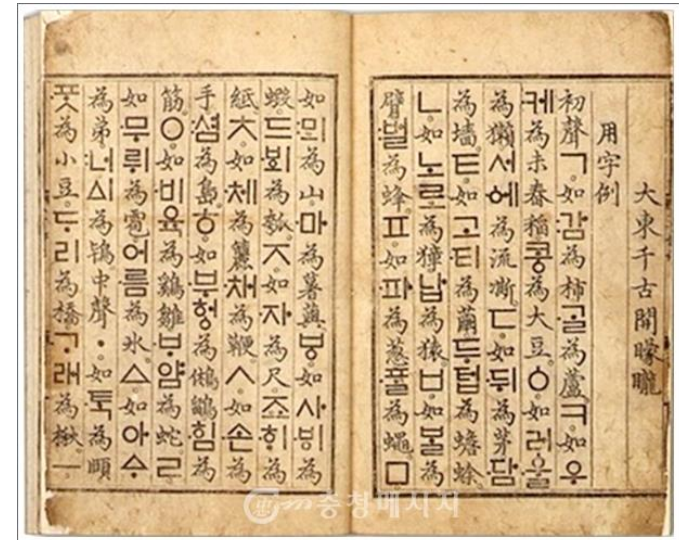 大東千古開矇矓
用字例
初聲ㄱ如감為柿ᄀᆞᆯ為蘆ㅋ如우
케為未舂稻콩為大豆ㆁ如러울
為獺서에為流凘ㄷ如뒤為茅담
為墻ㅌ如고티為繭두텁為蟾蜍
ㄴ如노로為獐납為猿ㅂ如ᄇᆞᆯ為
臂벌為蜂ㅍ如파為葱ᄑᆞᆯ為蠅ㅁ
如뫼為山마為薯藇ㅸ如사ᄫᅵ為
蝦드ᄫᅴ為瓠ㅈ如자為尺죠ᄒᆡ為
紙ㅊ如체為籭채為鞭ㅅ如손為
手셤為島ㅎ如부헝為鵂鶹힘為
筋ㅇ如비육為鷄雛ᄇᆞ얌為蛇ㄹ
如무뤼為雹어름為氷ㅿ如아ᅀᆞ
為弟너ᅀᅵ為鴇中聲ㆍ如ᄐᆞᆨ為頤
ᄑᆞᆺ為小豆ᄃᆞ리為橋ᄀᆞ래為楸ㅡ
충청메시지